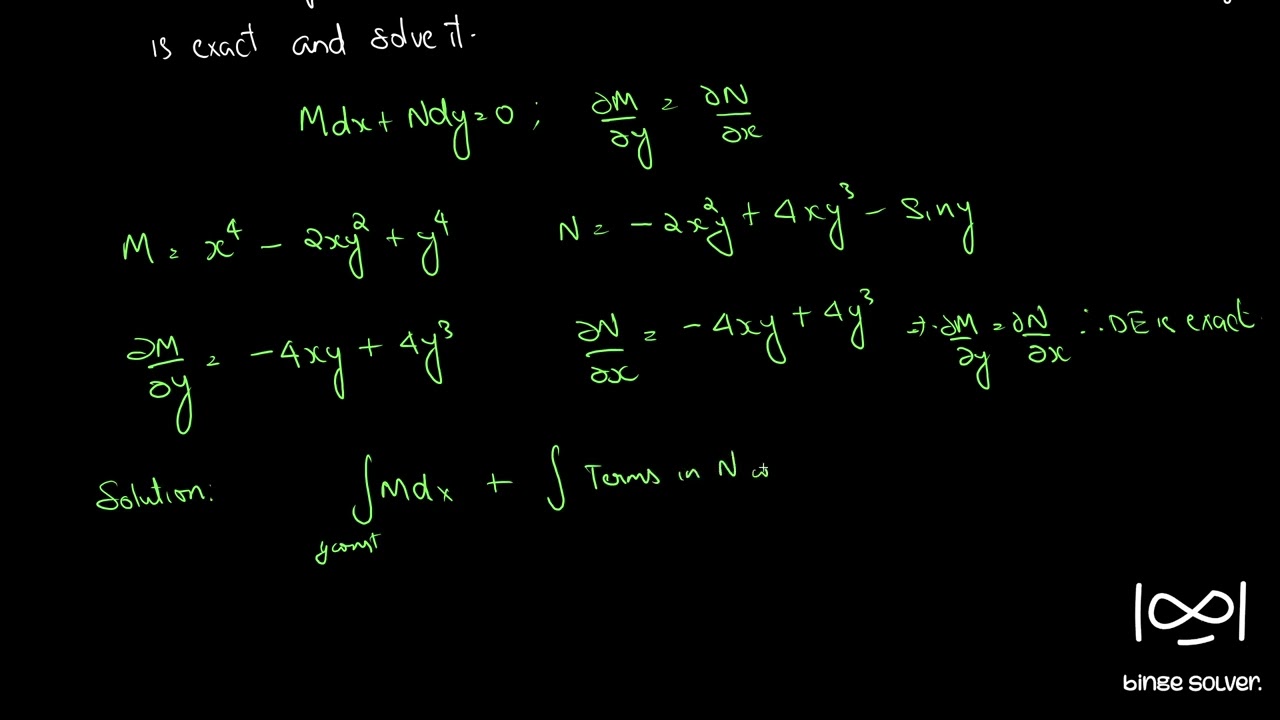 is exact and solve it.
Mdx + Ndy = 0 ; ∂M/∂y = ∂N/∂x
M = x⁴ - 2xy² + y⁴ N = - 2x²y + 4xy³ - Siny
∂M/∂y = -4xy + 4y³ ∂N/∂x = -4xy + 4y³ ⇒ ∂M/∂y = ∂N/∂x ∴ DE is exact.
Solution: ∫Mdx + ∫ Terms in N
y const
binge solver.